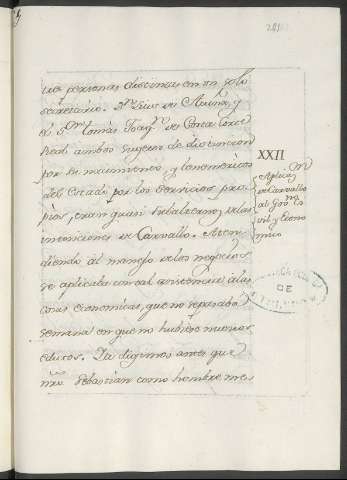 tres personas distintas en un solo
secretario. Dn Luis de Acuña, y
el Sor Tomás Joaqn de Costa Corte
Real ambos sugetos de distincion
por su nacimiento, y benemeritos
del Estado por los servicios pro-
pios, eran quasi subalternos de las
intenciones de Carvallo. Aten-
diendo al manejo de los negocios
se aplicaba con tal asistencia a las
cosas economicas, que no se pasaba
semana en que no hubiese nuevos
edictos. Ya digimos antes que
nro Sebastian como hombre mes
XXII
Aplica
de Carvallo
al Gov
vil y Econo
mico
DE